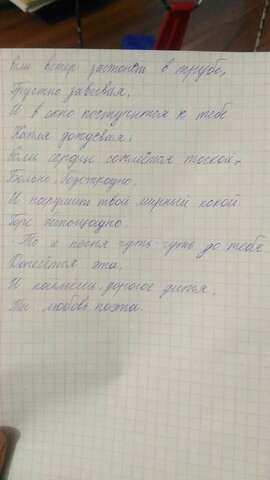 Если ветер застонет в трубе,
Грустно завывая,
И в окно постучится к тебе
Капля дождевая,
Если сердце сожмётся тоской,
Больно, безотрадно.
И нарушит твой мирный покой
Горе беспощадно.
То и песня чуть-чуть до тебя
Донесётся эта.
И дорогое дитя,
Ты любовь поэта.